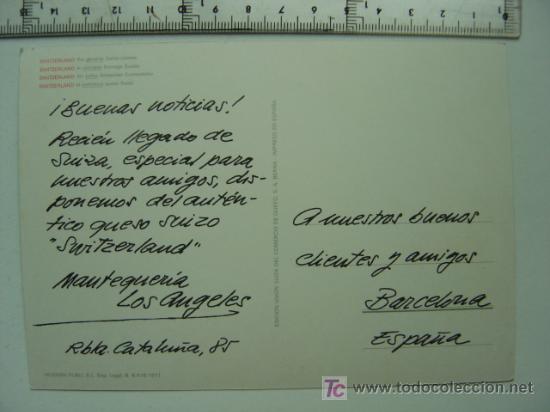 SWITZERLAND
SWITZERLAND
SWITZERLAND
SWITZERLAND
¡Buenas noticias!
Recién llegado de
Suiza, especial para
nuestros amigos, dis-
ponemos del autén-
tico queso suizo
"Switzerland"
Mantequería
Los Angeles
Rbla. Cataluña, 85
A nuestros buenos
clientes y amigos
Barcelona
España
todocoleccion